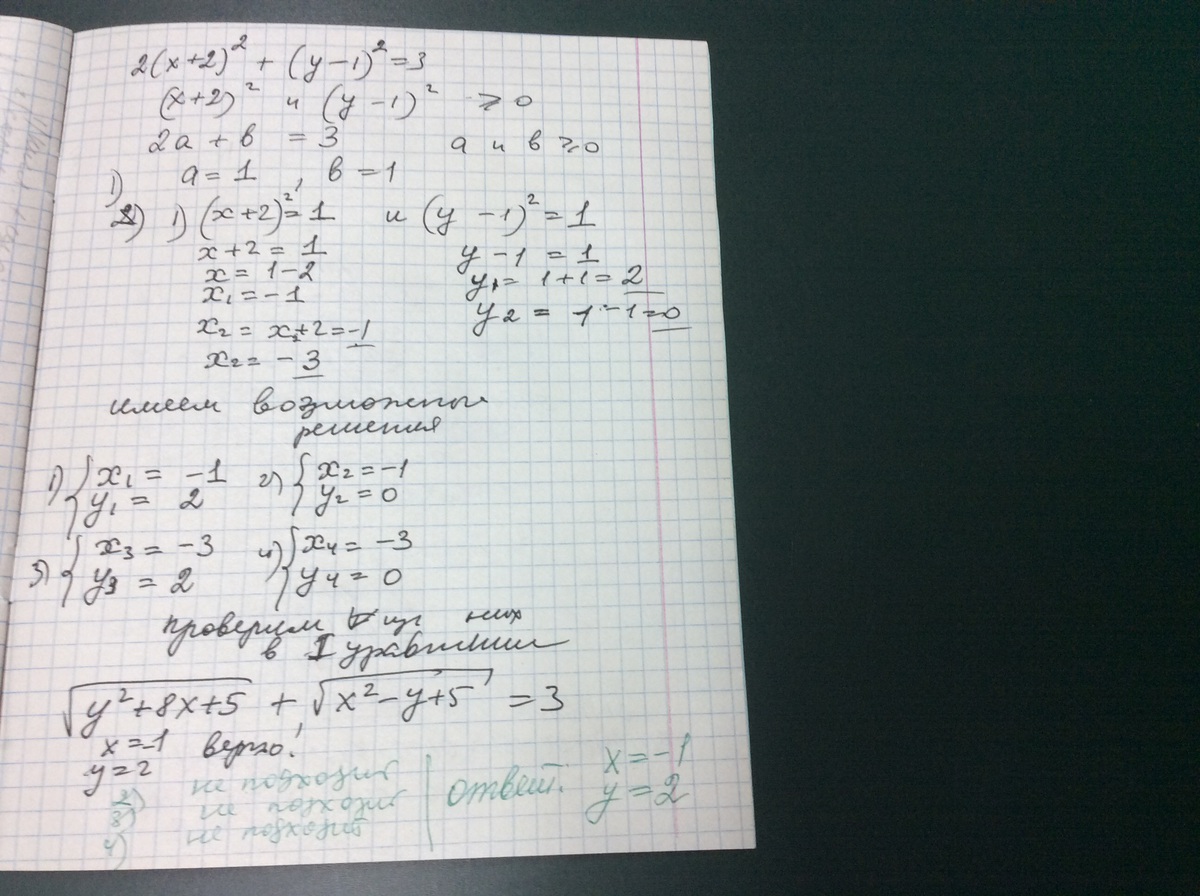 2(x+2)² + (y−1)² = 3
(x+2)² и (y−1)² ≥ 0
2a + в = 3 a и в ≥ 0
1) a = 1, в = 1
2) 1) (x+2)² = 1 и (y −1)² = 1
x+2 = 1 y −1 = 1
x = 1−2 y₁ = 1+1 = 2
x₁ = −1 y₂ = 1 − 1 = 0
x₂ = x₂+2 = −1
x₂ = − 3
имеем возможные
решения
1) { x₁ = −1 2) { x₂ = −1
y₁ = 2 y₂ = 0
3) { x₃ = −3 4) { x₄ = −3
y₃ = 2 y₄ = 0
проверим ∀ из них
в I уравнении
√(y²+8x+5) + √(x²−y+5) = 3
x = −1 верно!
y = 2
2) не подходит
3) не подходит
4) не подходит
ответ: x = −1
y = 2